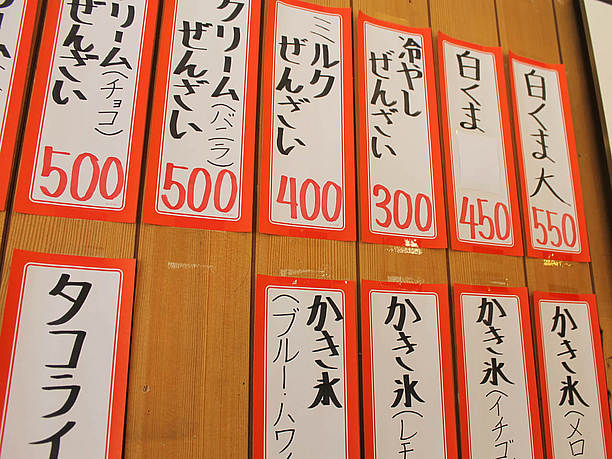 クリーム(チョコ)
ぜんざい
500
クリーム(バニラ)
ぜんざい
500
ミルク
ぜんざい
400
冷やし
ぜんざい
300
白くま
450
白くま大
550
タコライ
かき氷
(ブルーハワイ
かき氷
(レモ
かき氷
(イチゴ
かき氷
(メロ